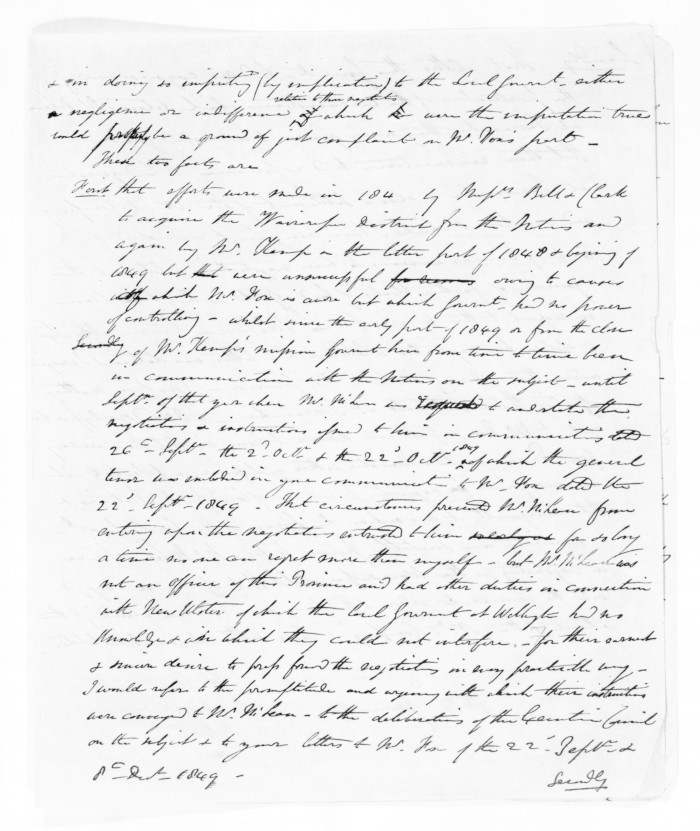 & in doing so imputing (by implication) to the Local Governt. either
relative to these negotiations
negligence or indifference which were the imputation true
would probably be a ground of just complaint on Mr. Fox's part –
These two facts are
First that efforts were made in 184 by Messrs. Bell & Clark
to acquire the Wairarapa District from the Natives and
again by Mr. Kemp in the latter part of 1848 & begining of
1849 but that were unsuccessful for reasons owing to causes
with which Mr. Fox is aware but which Governt. had no power
of controlling – whilst since the early part of 1849 or from the close
Secondly of Mr. Kemp's mission Governt. have from time to time been
in communication with the Natives on the subject – until
Septr. of that year when Mr. McLean was requested to undertake the
negotiations & instructions issued to him in communications dated
26th Septr. the 2d. Octr. & the 22d. Octr. 1849 of which the general
tenor was embodied in your communication to Mr. Fox dated the
22d. Septr. 1849 – That circumstances prevented Mr. McLean from
entering upon the negotiations entrusted to him so long as for so long
a time no one can regret more than myself – but Mr. McLean was
not an Officer of this Province and had other duties in connection
with New Ulster of which the Local Governt. at Wellington had no
Knowledge & with which they could not interfere. – for their earnest
& sincere desire to press forward the negotiations in every practicable way –
I would refer to the promptitude and urgency with which their instructions
were conveyed to Mr. McLean – to the deliberations of the Executive Council
on the subject & to your letters to Mr. Fox of the 22d. Septr. &
8th Decr. 1849 –
Secondly